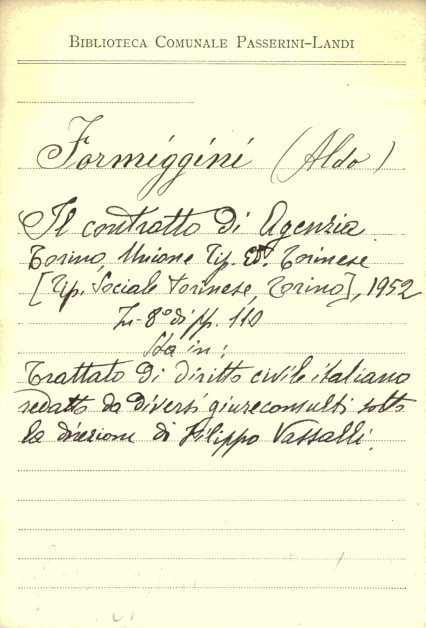 BIBLIOTECA COMUNALE PASSERINI-LANDI
Formiggini (Aldo)
Il contratto di Agenzia.
Torino Unione Tip. Ed. Torinese
[Tip. Sociale Torinese, Torino], 1952
In-8° di pp. 110
Sta in:
Trattato di diritto civile italiano
redatto da diversi giureconsulti sotto
la direzione di Filippo Vassalli.